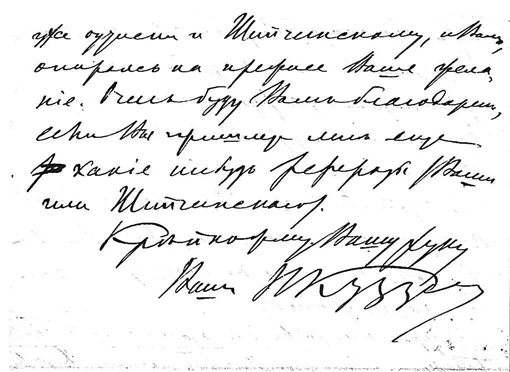 же оттиски и Шитчинскому, и Вамъ,
опираясь на прежнее Ваше жела-
ніе. Очень буду Вамъ благодарен,
если Вы пришлете мнѣ еще
какіе нибудь рефераты Ваши
или Шитчинскаго.
Крѣпко жму Вашу руку
Вашъ